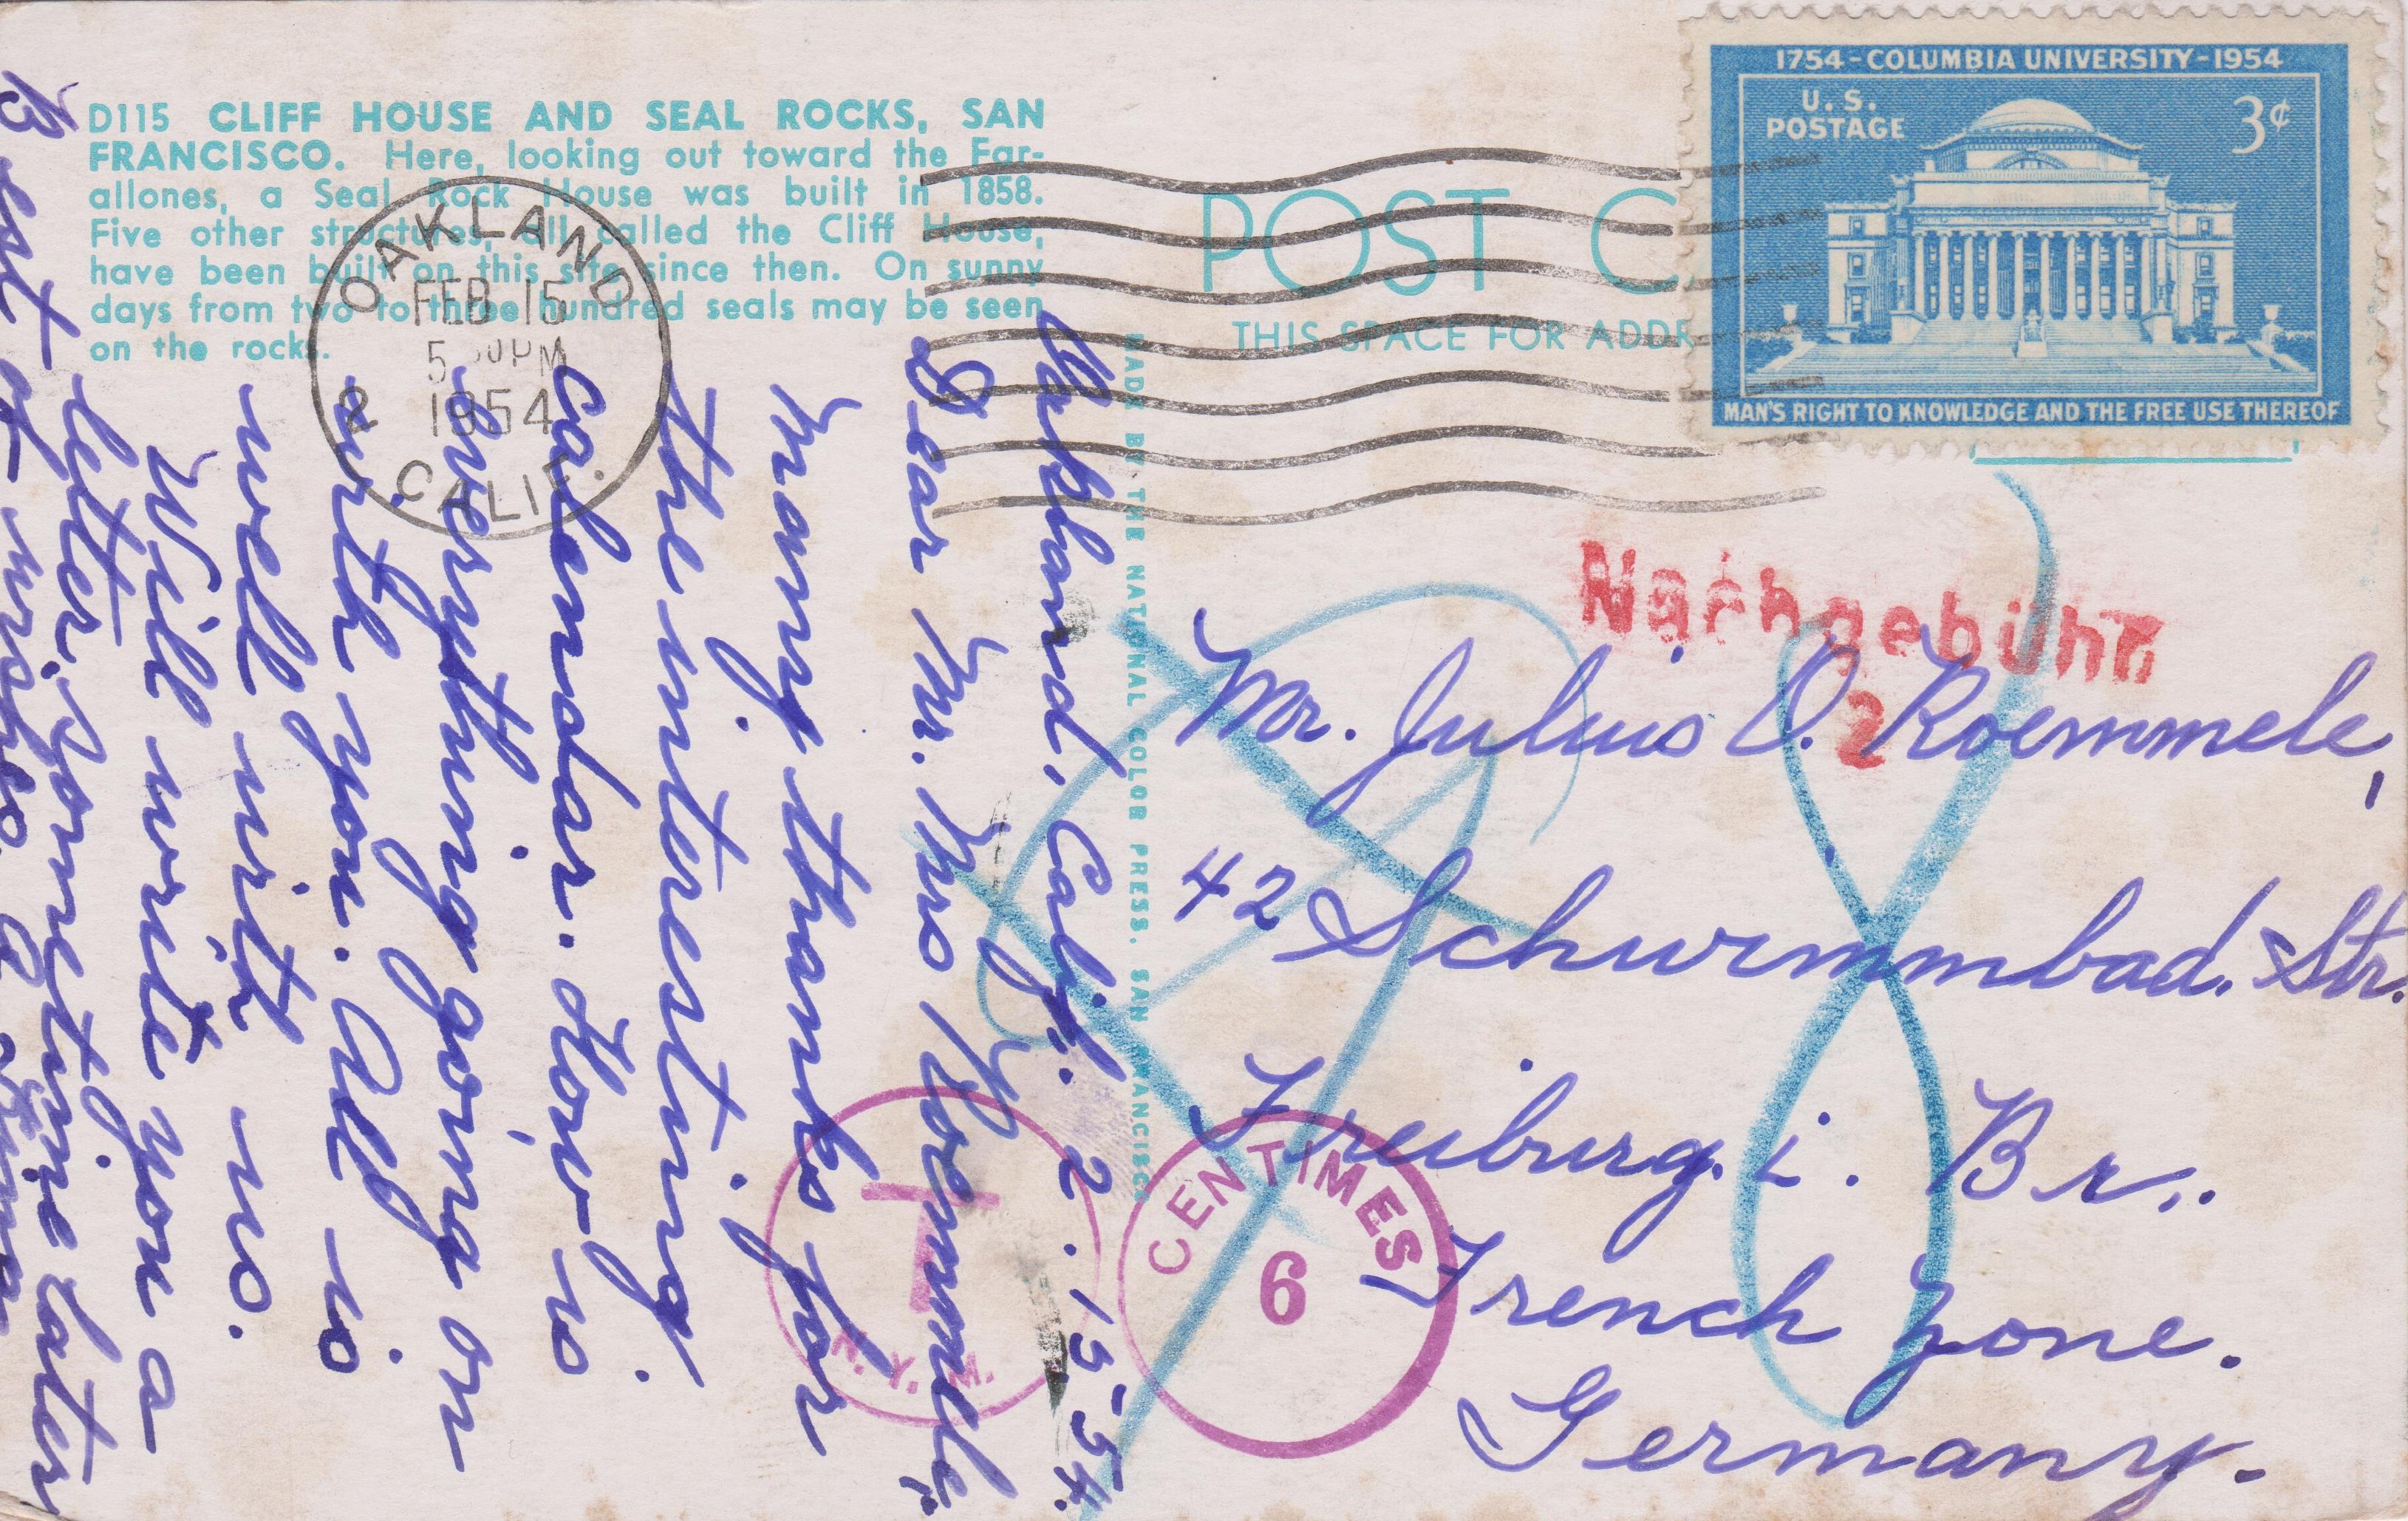 D115 CLIFF HOUSE AND SEAL ROCKS, SAN
FRANCISCO. Here, looking out toward the Far-
allones, a Seal Rock House was built in 1858.
Five other structures, all called the Cliff House,
have been built on this site since then. On sunny
days from two to three hundred seals may be seen
on the rocks.
OAKLAND
FEB 15
5 30 PM
1954
2
CALIF.
POST C
THIS SPACE FOR ADDR
1754-COLUMBIA UNIVERSITY-1954
U. S.
POSTAGE
3¢
MAN'S RIGHT TO KNOWLEDGE AND THE FREE USE THEREOF
MADE BY THE NATIONAL COLOR PRESS. SAN FRANCISCO
Oakland, Calif. 2. 15-54.
Dear Mr. Julius Roemmele,
Many thanks for
the interesting
calendar. How is
everything going on
with you. All is
well with us.
Will write you a
letter, sometime later
Best of
Nachgebühr
2
Mr. Julius O. Roemmele,
42 Schwimmbad. Str.
Freiburg. i. Br..
French Zone.
Germany.
T
N.Y. M.
CENTIMES
6